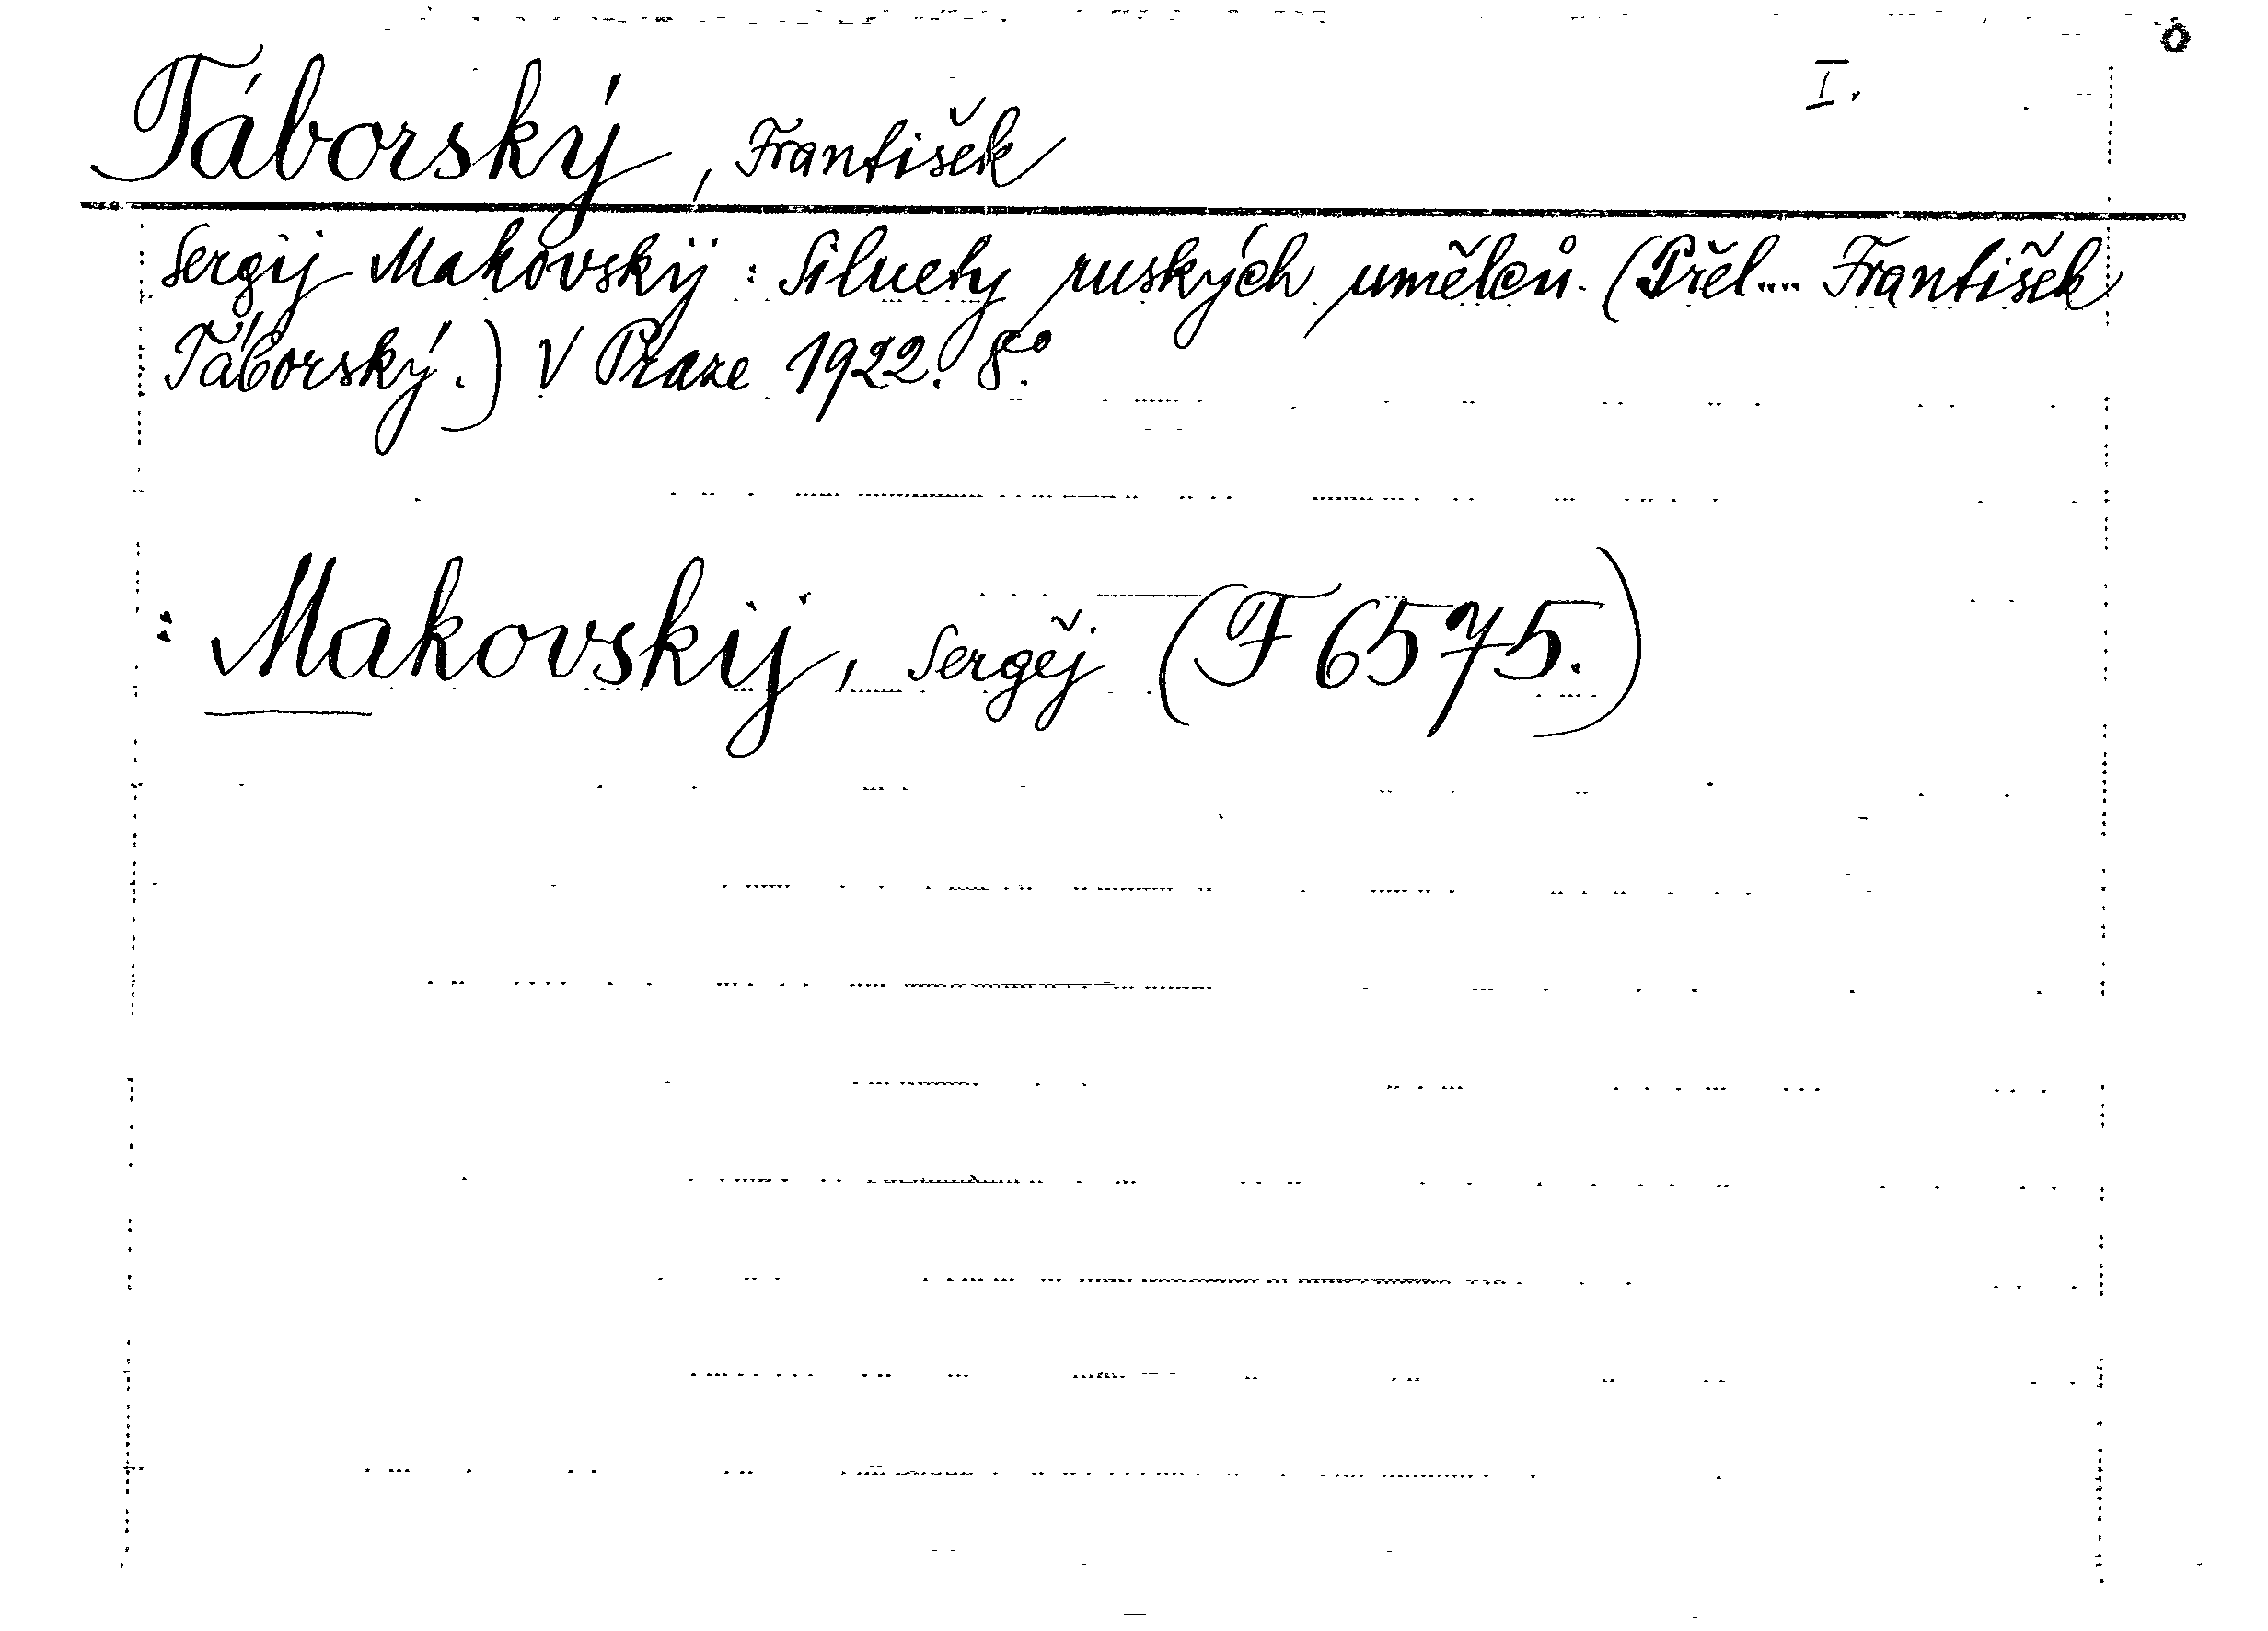 Táborský, František I.
Sergij Makovskij: Siluety ruských umělců. (Přel.... František
Táborský.) V Praze 1922. 8°.
: Makovskij, Sergěj (F 6575.)